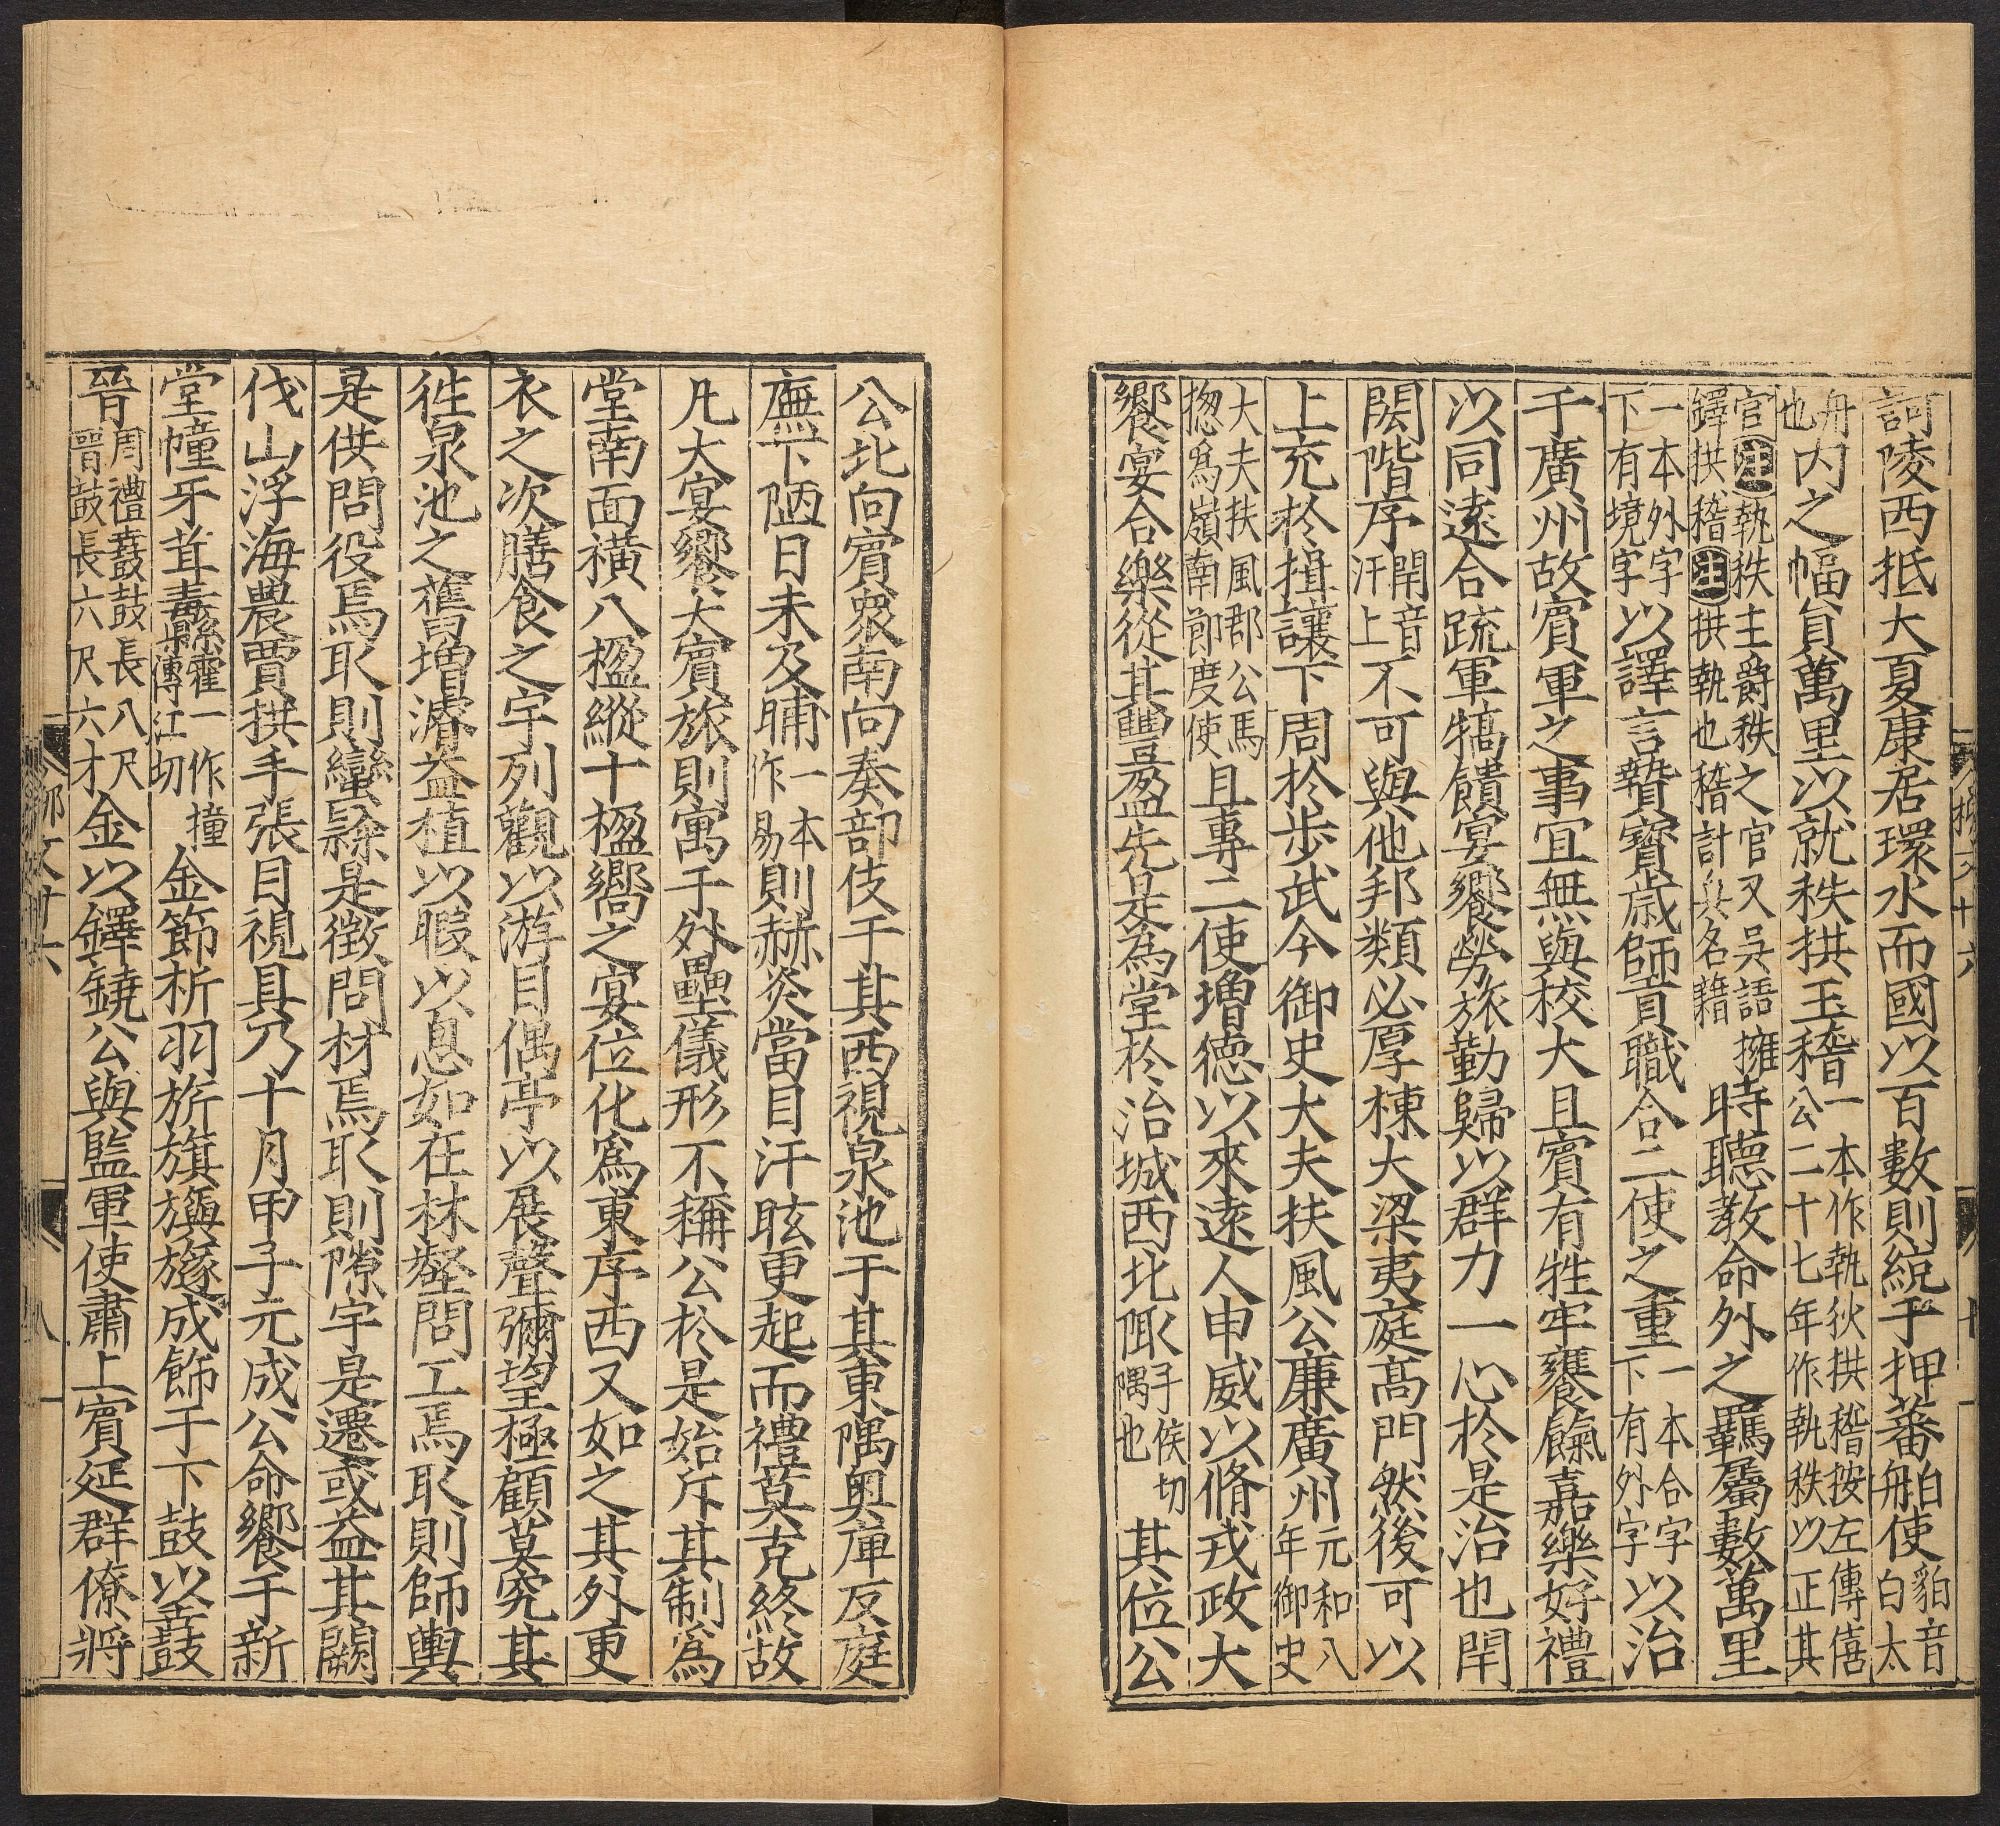 訶陵西抵大夏康居環水而國以百數則統于押蕃舶使貊音白太
舟也内之幅員萬里以就秩拱玉稽一本作執狄拱稽按左傳僖公二十七年作執秩以正其
官注執秩主爵秩之官又吳語擁鐸拱稽注拱執也稽計兵名籍時聽教命外之羈屬數萬里
一本外字下有境字以譯言贄寶歲師貢職合二使之重一本合字下有外字以治
于廣州故賓軍之事宜無與校大且賓有牲牢饔餼嘉樂好禮
以同遠合疏軍犒饋宴饗勞旅勤歸以群力一心於是治也閈
閎階序閈音汗上不可與他邦類必厚棟大梁夷庭髙門然後可以
上充於揖讓下周於步武今御史大夫扶風公廉廣州元和八年御史
大夫扶風郡公馬揔爲嶺南節度使且專二使增德以來遠人申威以脩戎政大
饗宴合樂從其豐盈先是為堂於治城西北陬子侯切隅也其位公
公北向賓衆南向奏部伎于其西視泉池于其東隅奥庳仄庭
廡下陋日未及晡一本作易則赫炎當目汗眩更起而禮莫克終故
凡大宴饗大賓旅則寓于外壘儀形不稱公於是始斥其制為
堂南面横八楹縱十楹嚮之宴位化爲東序西又如之其外更
衣之次膳食之宇列觀以游目偶亭以展聲彌望極顧莫究其
徃泉池之舊增濬益植以暇以息如在林壑問工焉取則師輿
是供問役焉取則蠻隸是徴問材焉取則隙宇是遷或益其闕
伐山浮海農賈拱手張目視具乃十月甲子元成公命饗于新
堂幢牙茸纛幢一作撞傳江切金節析羽旂旗旟旞成飾于下鼓以鼖鼓
晉周禮鼖鼓長八尺晉鼓長六尺六寸金以鐸鐃公與監軍使肅上賓延群僚將